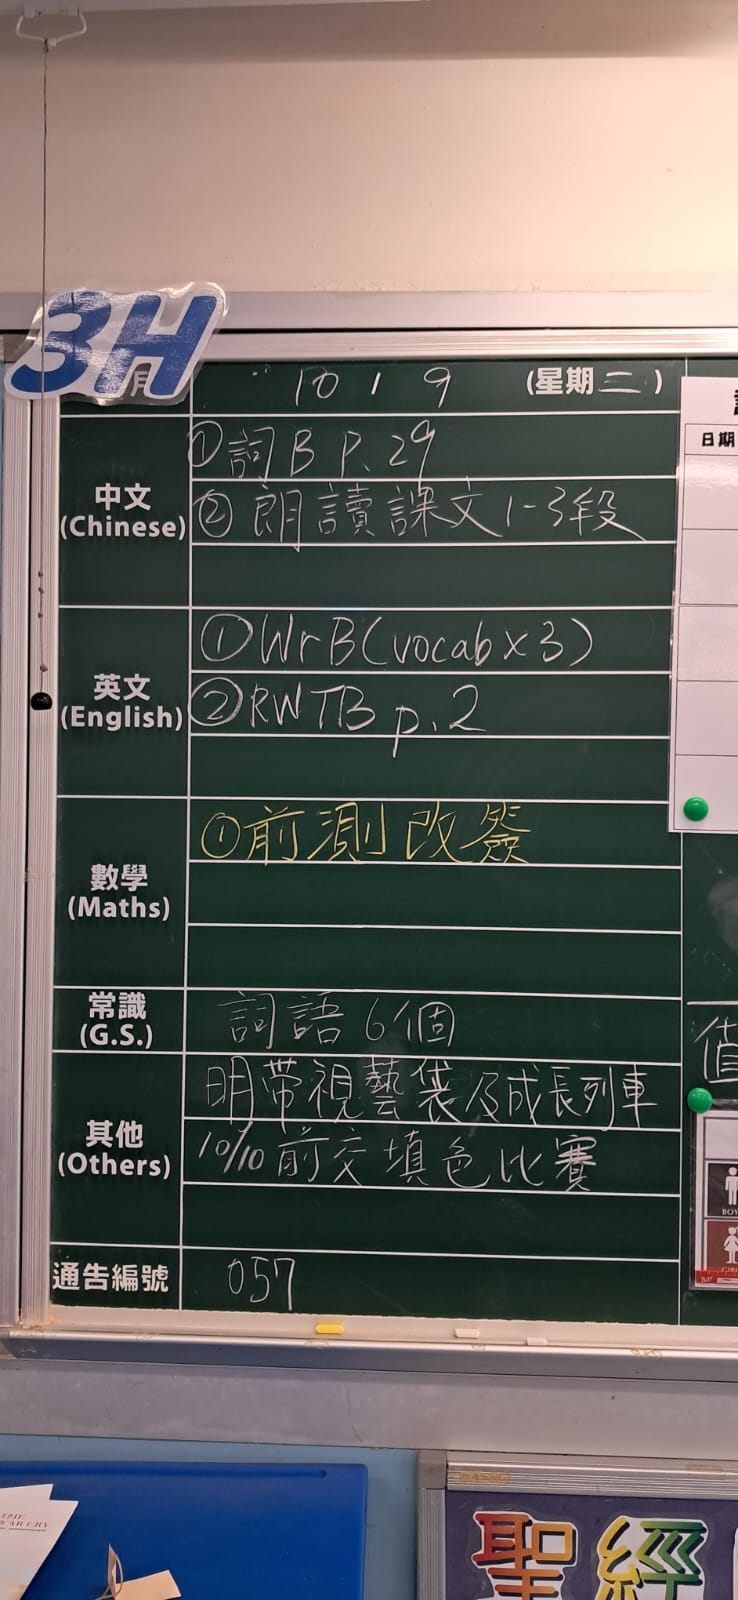 3H
月 10 1 9 (星期二)
中文
(Chinese)
①詞B P.29
②朗讀課文1-3段
英文
(English)
①WrB(vocab×3)
②RWTB p.2
數學
(Maths)
①前測改簽
常識
(G.S.)
詞語6個
其他
(Others)
明帶視藝袋及成長列車
10/10前交填色比賽
通告編號
057
日期
值
BOY
聖經